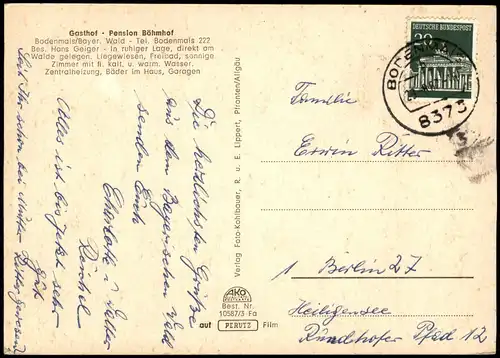 Gasthof - Pension Böhmhof
Bodenmais/Bayer. Wald - Tel. Bodenmais 222
Bes. Hans Geiger - In ruhiger Lage, direkt am
Walde gelegen. Liegewiesen, Freibad, sonnige
Zimmer mit fl. kalt. u. warm. Wasser.
Zentralheizung, Bäder im Haus, Garagen
Die herzlichsten Grüße
aus dem Bayerischen Wald
senden Euch
Charlotte u. Walter
Alles ist bis jetzt sehr
gut
Seid Ihr schon bei Mutter Ritter gewesen
Verlag Foto-Kohlbauer, R. u. E. Lippert, Pfronten/Allgäu
AKO
Best. Nr.
10587/3 Fa
auf PERUTZ Film
DEUTSCHE BUNDESPOST
20
BODENMAIS
8373
Familie
Erwin Ritter
1 Berlin 27
Heiligensee
Rundhofer Pfad 12